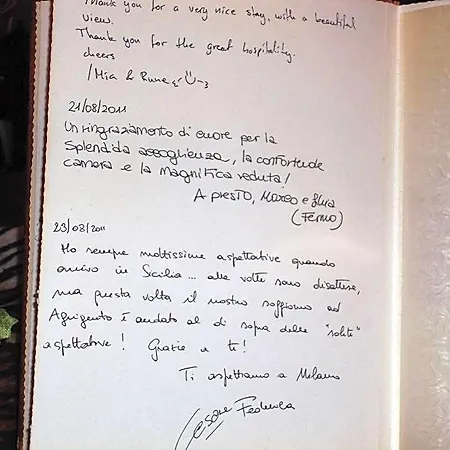 Thank you for a very nice stay, with a beautiful
view.
Thank you for the great hospitality.
cheers
/Mia & Rune
21/08/2011
Un ringraziamento di cuore per la
splendida accoglienza, la confortevole
camera e la magnifica veduta!
A presto, Marco e
(Fermo)
23/08/2011
Ho sempre moltissime aspettative quando
arrivo in Sicilia... alle volte sono disattese,
ma questa volta il nostro soggiorno ad
Agrigento è andato al di sopra delle "solite"
aspettative! Grazie a te!
Ti aspettiamo a Milano
Cesare Federica